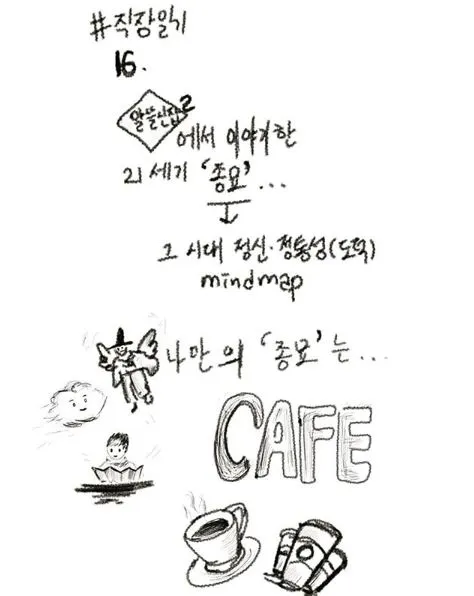 #직장일기
16.
알뜰신잡2에서 이야기한
21세기 '종묘'...
그 시대 정신·정통성(도덕)
mindmap
나만의 '종묘'는...
CAFE